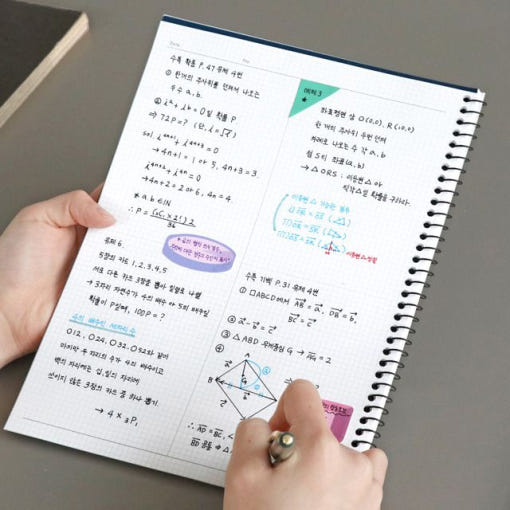 수특 확통 P.47 유제 4번
① 한개의 주사위를 던져서 나오는
두수 a, b.
② iᵃ + iᵇ = 0 일 확률 P
⇒ 72P = ? (단, i = √-1)
Sol. i⁴ⁿ⁺¹ + i⁴ⁿ⁺³ = 0
→ 4n+1 = 1 or 5, 4n+3 = 3.
i⁴ⁿ⁺² + i⁴ⁿ = 0
→ 4n+2 = 2 or 6, 4n = 4
* a, b ∈ N
∴ P =
36
유제 6.
5장의 카드 1, 2, 3, 4, 5
서로 다른 카드 3장을 뽑아 일렬로 나열
→ 3자리 자연수가 4의 배수 or 5의 배수일
확률이 P일때, 100P = ?
4의 배수인 세자리 수
012, 024, 032, 052와 같이
마지막 두 자리의 수가 4의 배수이고
백의 자리에는 십, 일의 자리에
쓰이지 않은 3장의 카드 중 하나 뽑기.
→ 4 × ₃P₁
예제 3
★
좌표평면 상 O(0,0), R(,0)
한 개의 주사위 두번 던져
차례로 나오는 수 각 a, b
점 S의 좌표 (a, b)
→ △ORS : 이등변 △ or
직각△일 확률을 구하라.
이등변 △ 가능한 경우
수특 기벡 P.31 유제 4번
① □ABCD에서 AB = a, DB = b,
BC = c
② a - b = c
③ △ABD 무게중심 G → AG = 2
④
A
B
G
∴ AD = BC,
BD 공통 ⇒ △